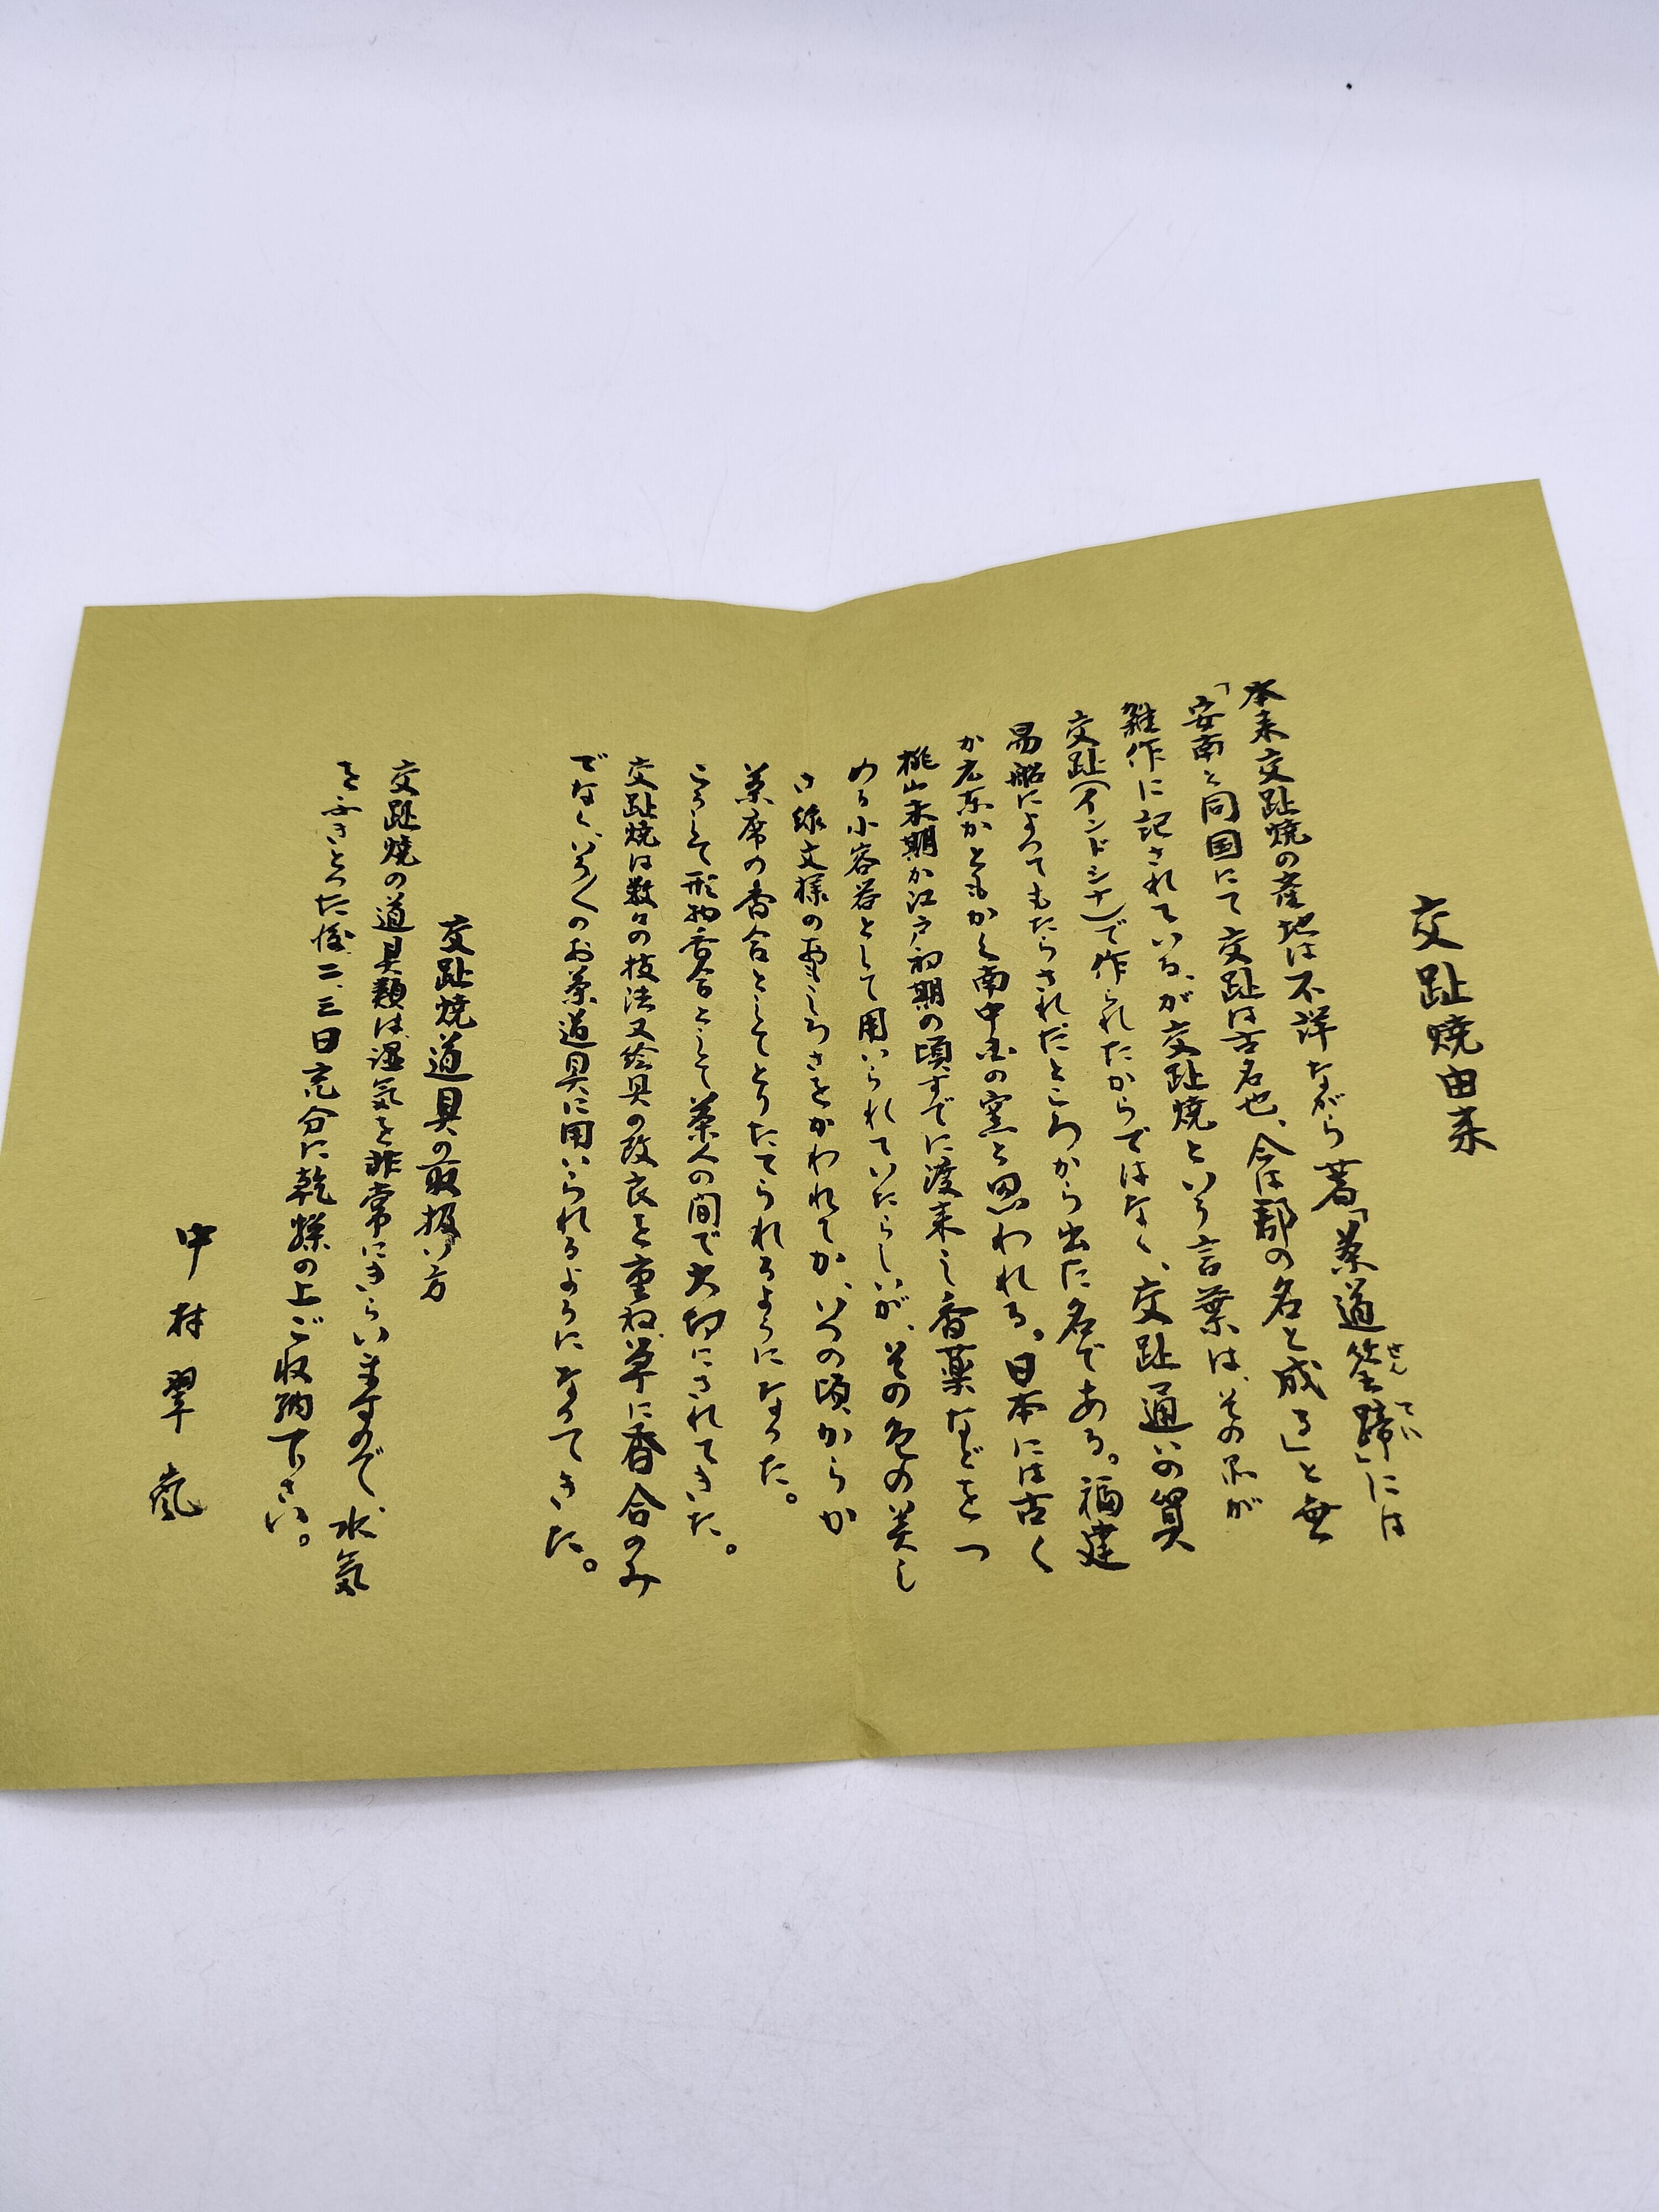 交趾焼由来
本来交趾焼の産地は不詳ながら著「茶道筌蹄」には
せんてい
「安南と同国にて交趾は古名也、今は郡の名と成る」と無
雑作に記されている、が交趾焼という言葉は、その品が
交趾(インドシナ)で作られたからではなく、交趾通いの貿
易船によってもたらされたところから出た名である。福建
か広東かともかく南中国の窯と思われる。日本には古く
桃山末期か江戸初期の頃すでに渡来し香薬などをつ
める小容器として用いられていたらしいが、その色の美し
さ線文様のおもしろさをかわれてか、いつの頃からか
茶席の香合としてとりたてられるようになった。
こうして形物香合として茶人の間で大切にされてきた。
交趾焼は数々の技法又絵具の改良を重ね、単に香合のみ
でなく、いろ〱のお茶道具に用いられるようになってきた。
交趾焼道具の取扱い方
交趾焼の道具類は、湿気を非常にきらいますので、水気
をふきとった後二、三日充分に乾燥の上ご収納下さい。
中村翠嵐